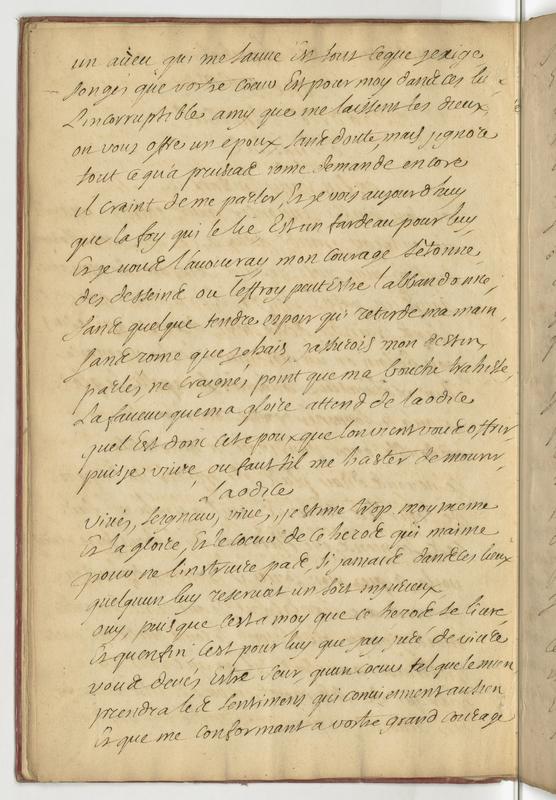 un aueu qui me sauue Est tout ceque jexige,
songés que vostre coeur Est pour moy dans ces lieux
L'incorruptible amy que me laissent les dieux,
on vous offre un epoux sans doute, mais j'ignore
tout ce qu'a prusias rome demande encore
il craint de me parler, Et je vois aujourd'huy
que la foy qui le lie, Est un fardeau pour luy
Et je vous l'auoueray mon courage s'étonne,
des desseins ou l'effroy peut estre l'abbandonne,
sans quelque tendre espoir qui retarde ma main,
sans rome que je hais, j'assurois mon destin,
parlés, ne craignés point que ma bouche trahisse,
La faueur que ma gloire attend de laodice
quel Est donc cet epoux que l'on vient vous offrir,
puis je viure ou faut til me haster de mourir
Laodice
viués, seigneur, viués, j'estime trop moy meme
Et la gloire, Et le coeur de ce heros qui m'aime
pour ne l'instruire pas, si jamais dans ces lieux
quelqu'un luy reseruoit un sort injurieux
ouy, puis que c'est a moy que ce heros se liure,
Et qu'enfin c'est pour luy que j'ay juré de viure
vous deués Estre seur, qu'un coeur tel que le mien
prendra les sentimens qui conuiennent au sien
Et que me conformant a vostre grand courage